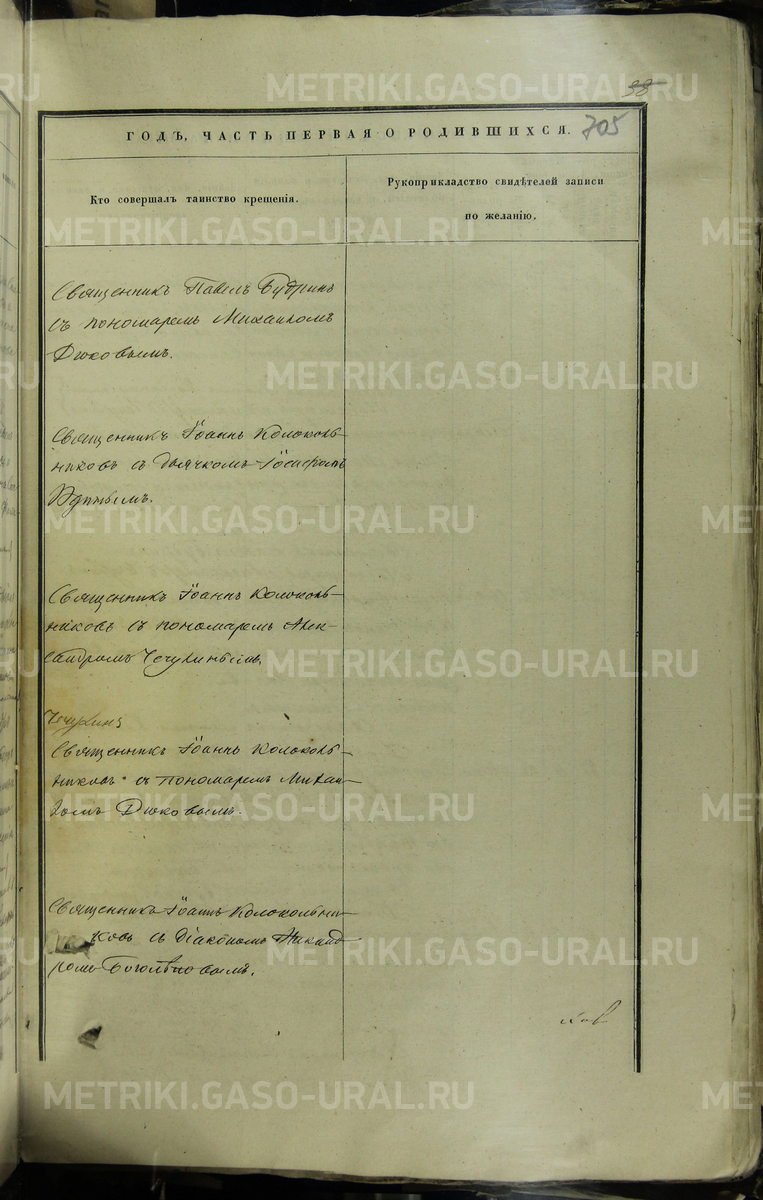 38
705
ГОДЪ, ЧАСТЬ ПЕРВАЯ О РОДИВШИХСЯ.
Кто совершалъ таинство крещенія.
Рукоприкладство свидѣтелей записи
по желанію.
Священникъ Павелъ Будринъ
съ пономаремъ Михаиломъ
Дюковымъ.
Священникъ Іоаннъ Колоколь-
никовъ съ дьячкомъ Іосифомъ
Священникъ Іоаннъ Колоколь-
никовъ съ пономаремъ Алек-
сандромъ Чечулинымъ.
Чечулинъ
Священникъ Іоаннъ Колоколь-
никовъ съ пономаремъ Михаи-
ломъ Дюковымъ.
Священникъ Іоаннъ Колокольни-
ковъ съ Діакономъ Никанд-
ромъ Боголѣповымъ.
METRIKI.GASO-URAL.RU